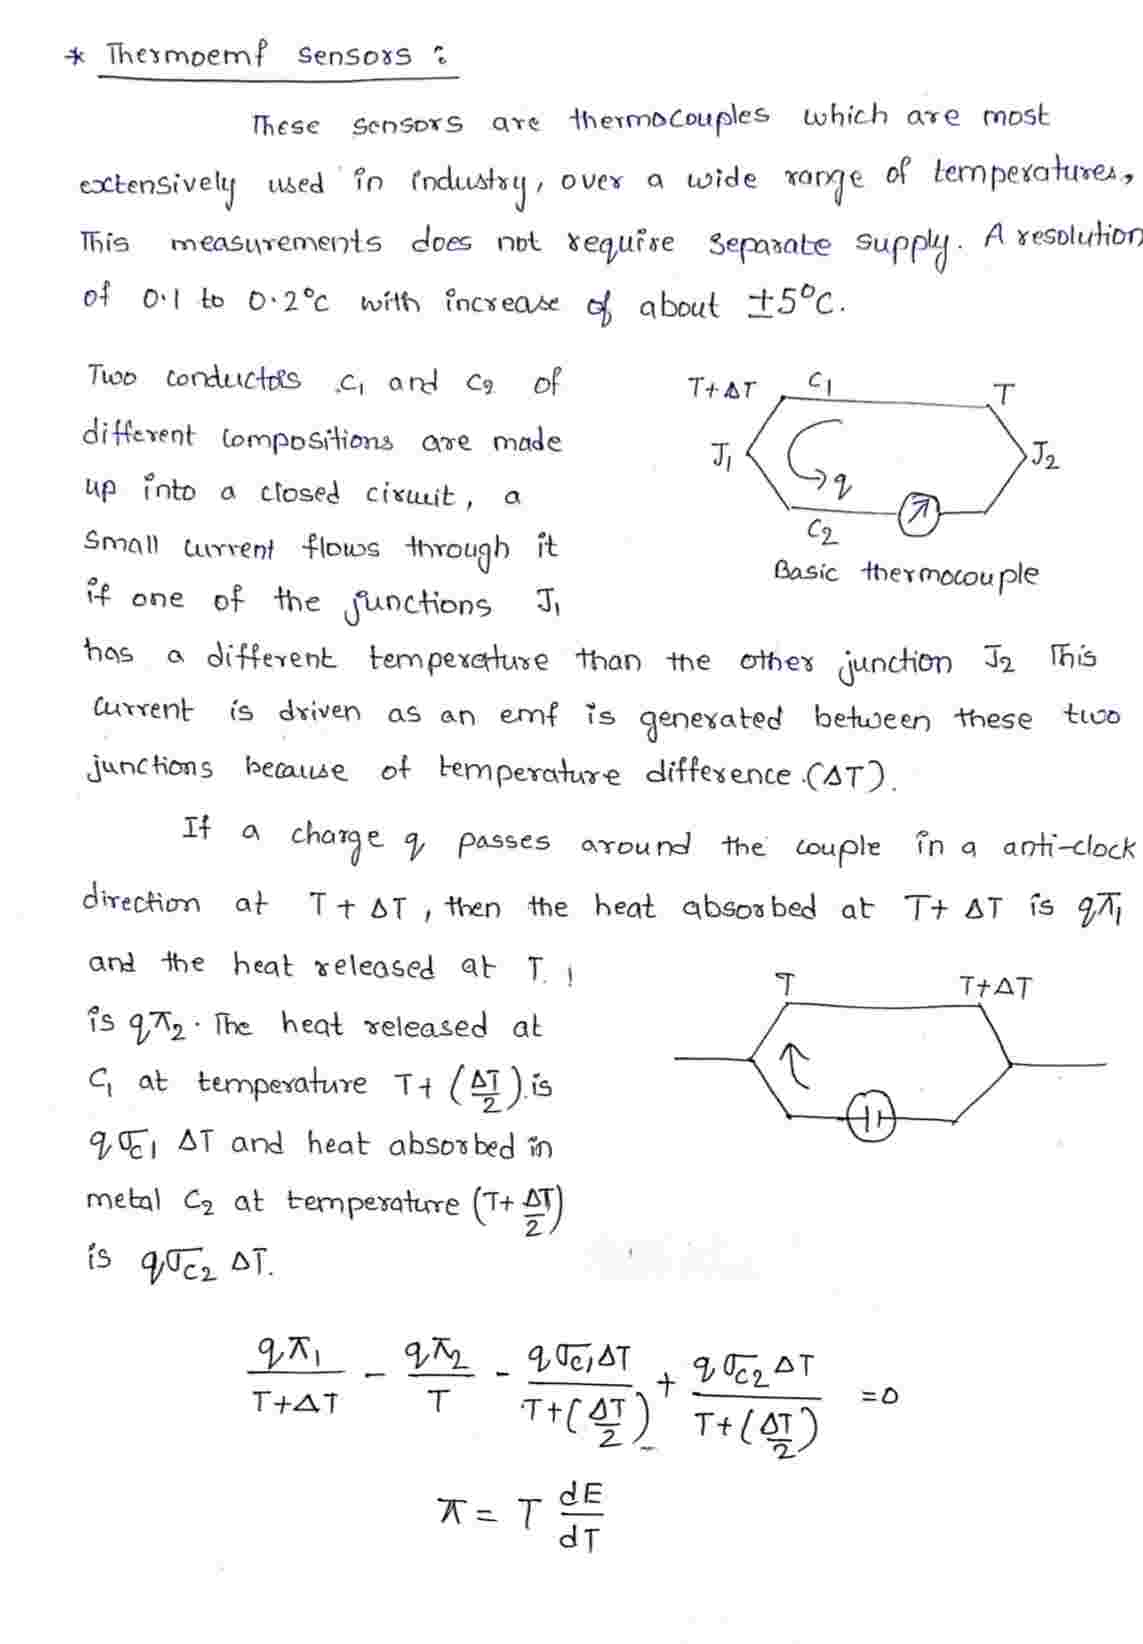 * Thermoemf sensors :
These sensors are thermocouples which are most
extensively used in industry, over a wide range of temperatures,
This measurements does not require separate supply. A resolution
of 0.1 to 0.2°C with increase of about ±5°C.
Two conductors C1 and C2 of
different compositions are made
up into a closed circuit, a
small current flows through it
if one of the junctions J1
T+ΔT C1 T
J1 q J2
C2
Basic thermocouple
has a different temperature than the other junction J2 This
current is driven as an emf is generated between these two
junctions because of temperature difference (ΔT).
If a charge q passes around the couple in a anti-clock
direction at T+ΔT, then the heat absorbed at T+ΔT is qπ1
and the heat released at T.
is qπ2. The heat released at
C1 at temperature T+(ΔT/2) is
qσC1 ΔT and heat absorbed in
metal C2 at temperature (T+ΔT/2)
is qσC2 ΔT.
T T+ΔT
qπ1/(T+ΔT) - qπ2/T - qσC1ΔT/(T+(ΔT/2)) + qσC2ΔT/(T+(ΔT/2)) =0
π = T dE/dT